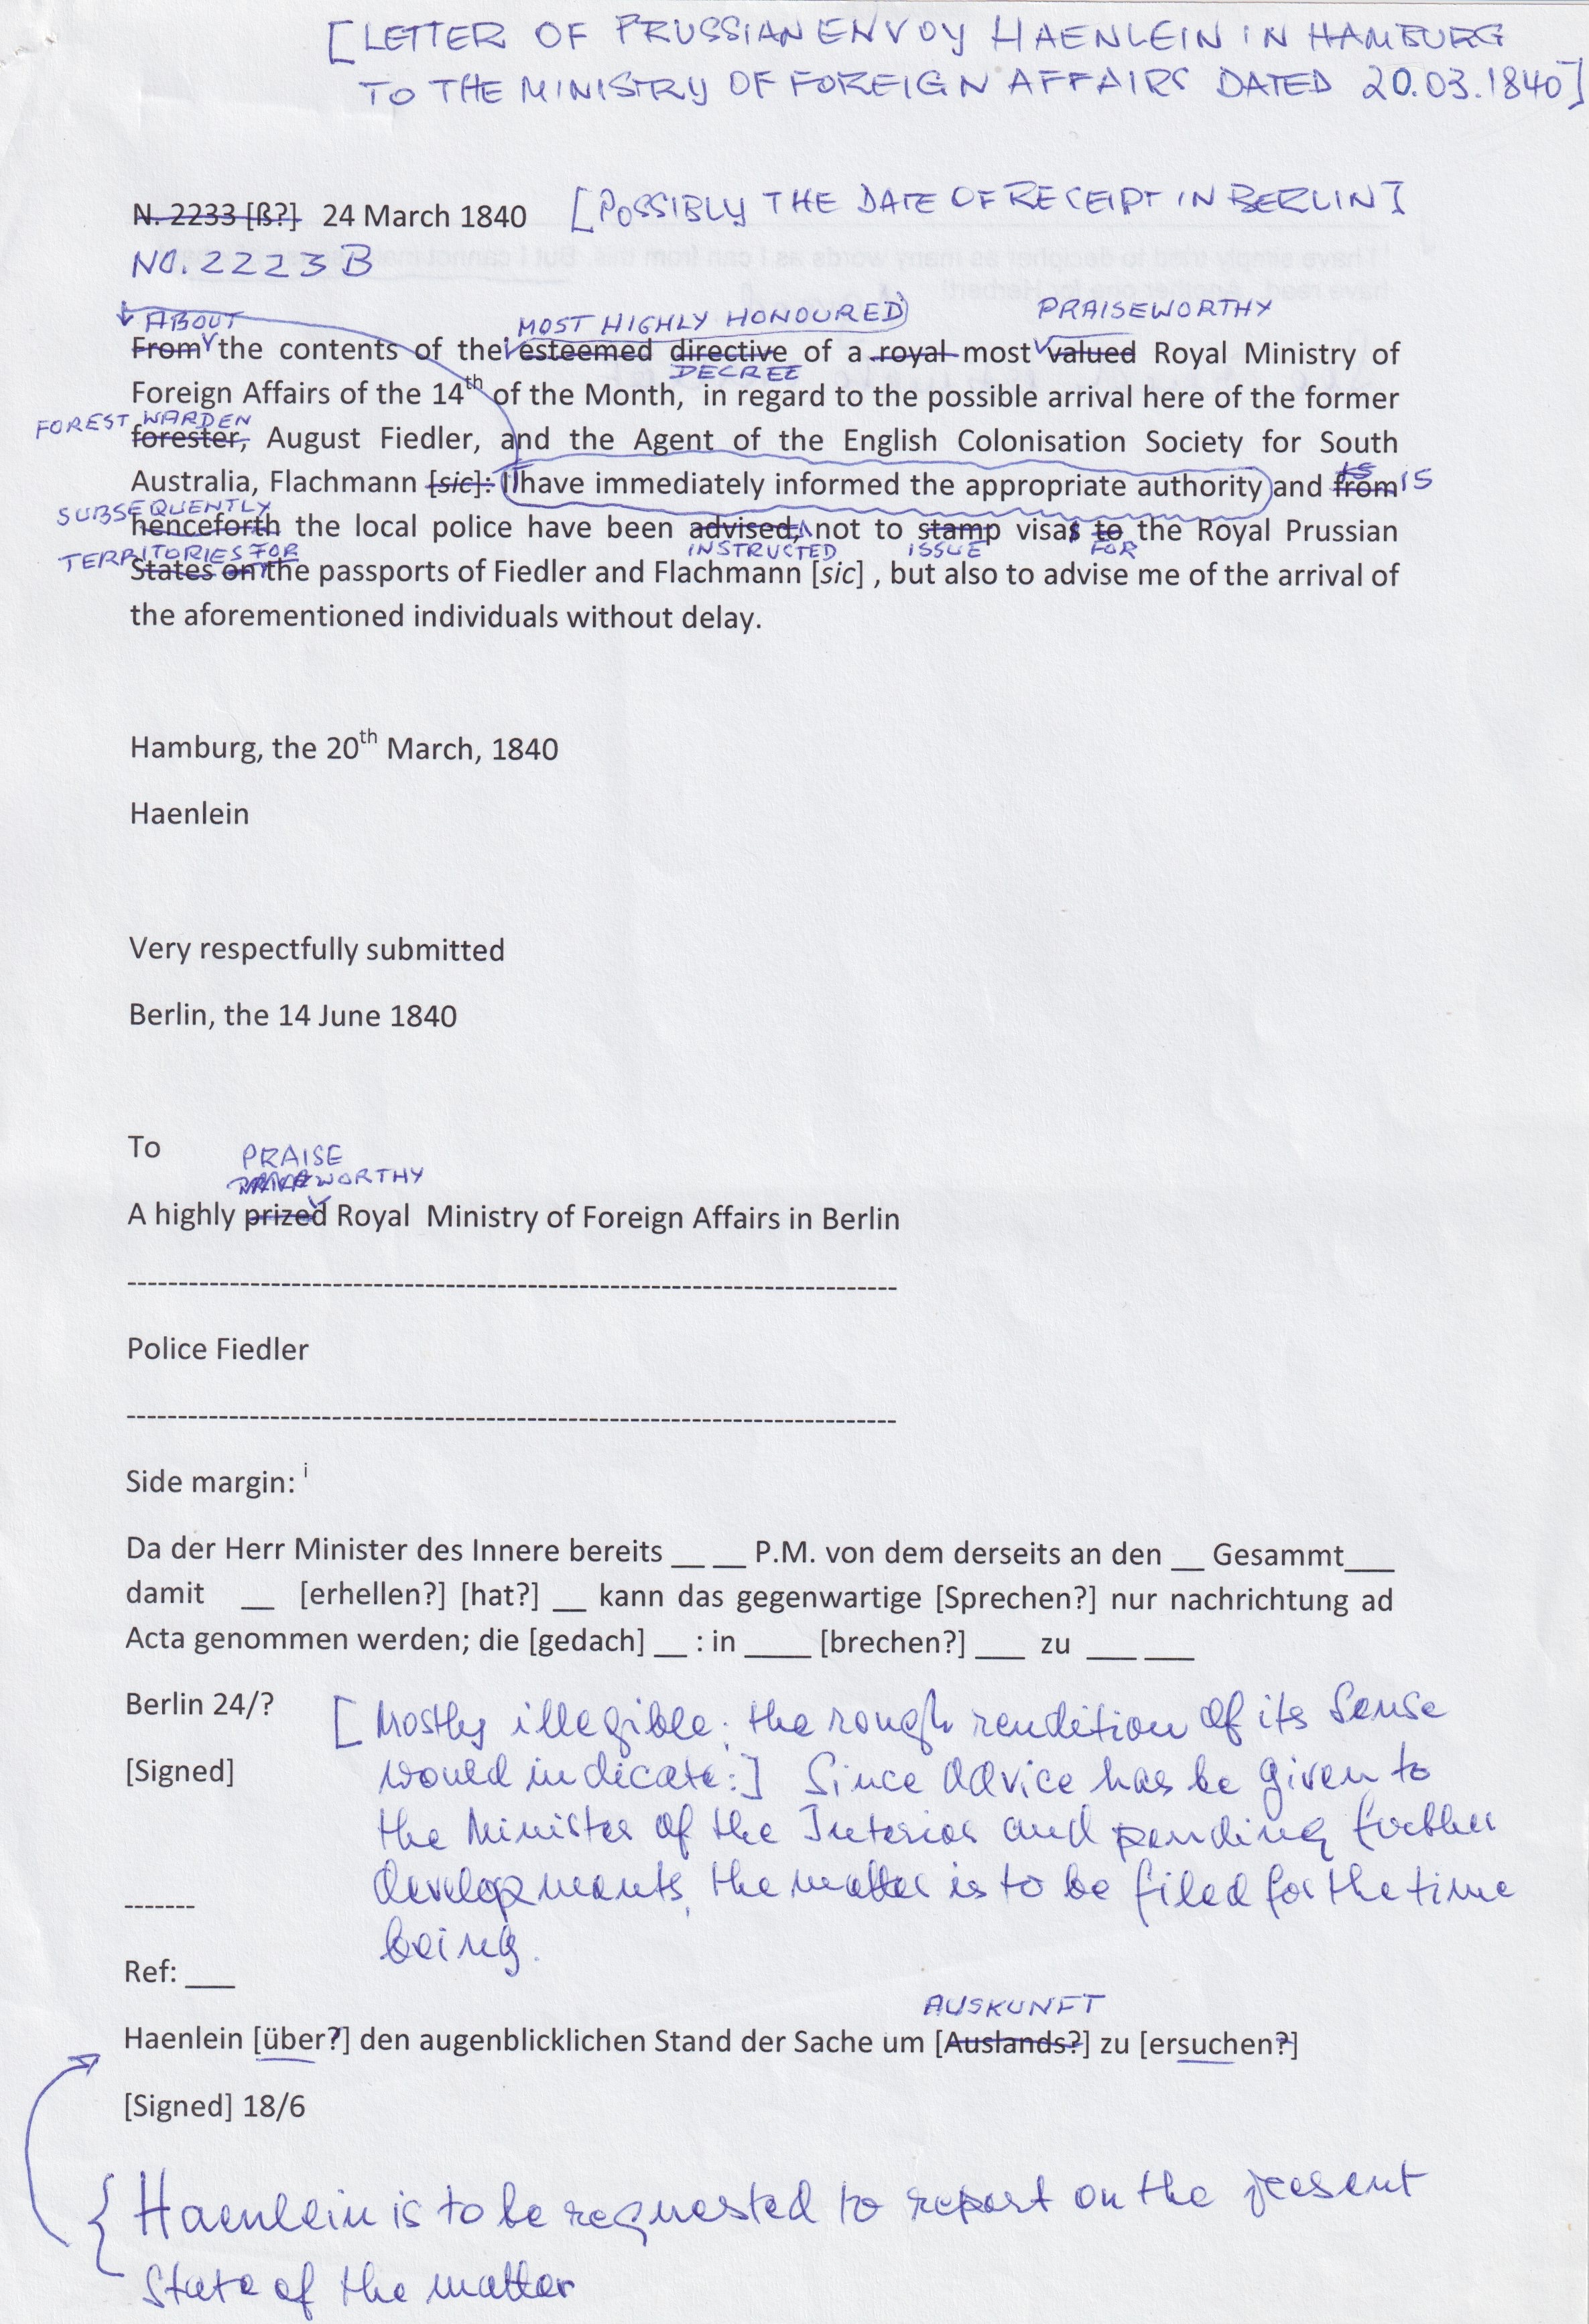 [LETTER OF PRUSSIAN ENVOY HAENLEIN IN HAMBURG
TO THE MINISTRY OF FOREIGN AFFAIRS DATED 20.03.1840]
N. 2233 [ß?] 24 March 1840 [POSSIBLY THE DATE OF RECEIPT IN BERLIN]
NO. 2223 B
ABOUT MOST HIGHLY HONOURED PRAISEWORTHY
From the contents of the esteemed directive of a royal most valued Royal Ministry of
DECREE
Foreign Affairs of the 14th of the Month, in regard to the possible arrival here of the former
FOREST WARDEN
forester, August Fiedler, and the Agent of the English Colonisation Society for South
Australia, Flachmann [sic]: I have immediately informed the appropriate authority and from IS IS
SUBSEQUENTLY
henceforth the local police have been advised, not to stamp visas to the Royal Prussian
TERRITORIES FOR INSTRUCTED ISSUE FOR
States on the passports of Fiedler and Flachmann [sic] , but also to advise me of the arrival of
the aforementioned individuals without delay.
Hamburg, the 20th March, 1840
Haenlein
Very respectfully submitted
Berlin, the 14 June 1840
To
PRAISE
WORTHY
A highly prized Royal Ministry of Foreign Affairs in Berlin
--------------------------------------------------------------------------
Police Fiedler
--------------------------------------------------------------------------
Side margin: i
Da der Herr Minister des Innere bereits __ __ P.M. von dem derseits an den __ Gesammt___
damit __ [erhellen?] [hat?] __ kann das gegenwartige [Sprechen?] nur nachrichtung ad
Acta genommen werden; die [gedach] __ : in ____ [brechen?] ___ zu ___ ___
Berlin 24/?
[Mostly illegible; the rough rendition of its sense
would indicate:] Since advice has be given to
[Signed]
the Minister of the Interior and pending further
developments, the matter is to be filed for the time
-------
being.
Ref: ___
AUSKUNFT
Haenlein [über?] den augenblicklichen Stand der Sache um [Auslands?] zu [ersuchen?]
[Signed] 18/6
{Haenlein is to be requested to report on the present
State of the matter